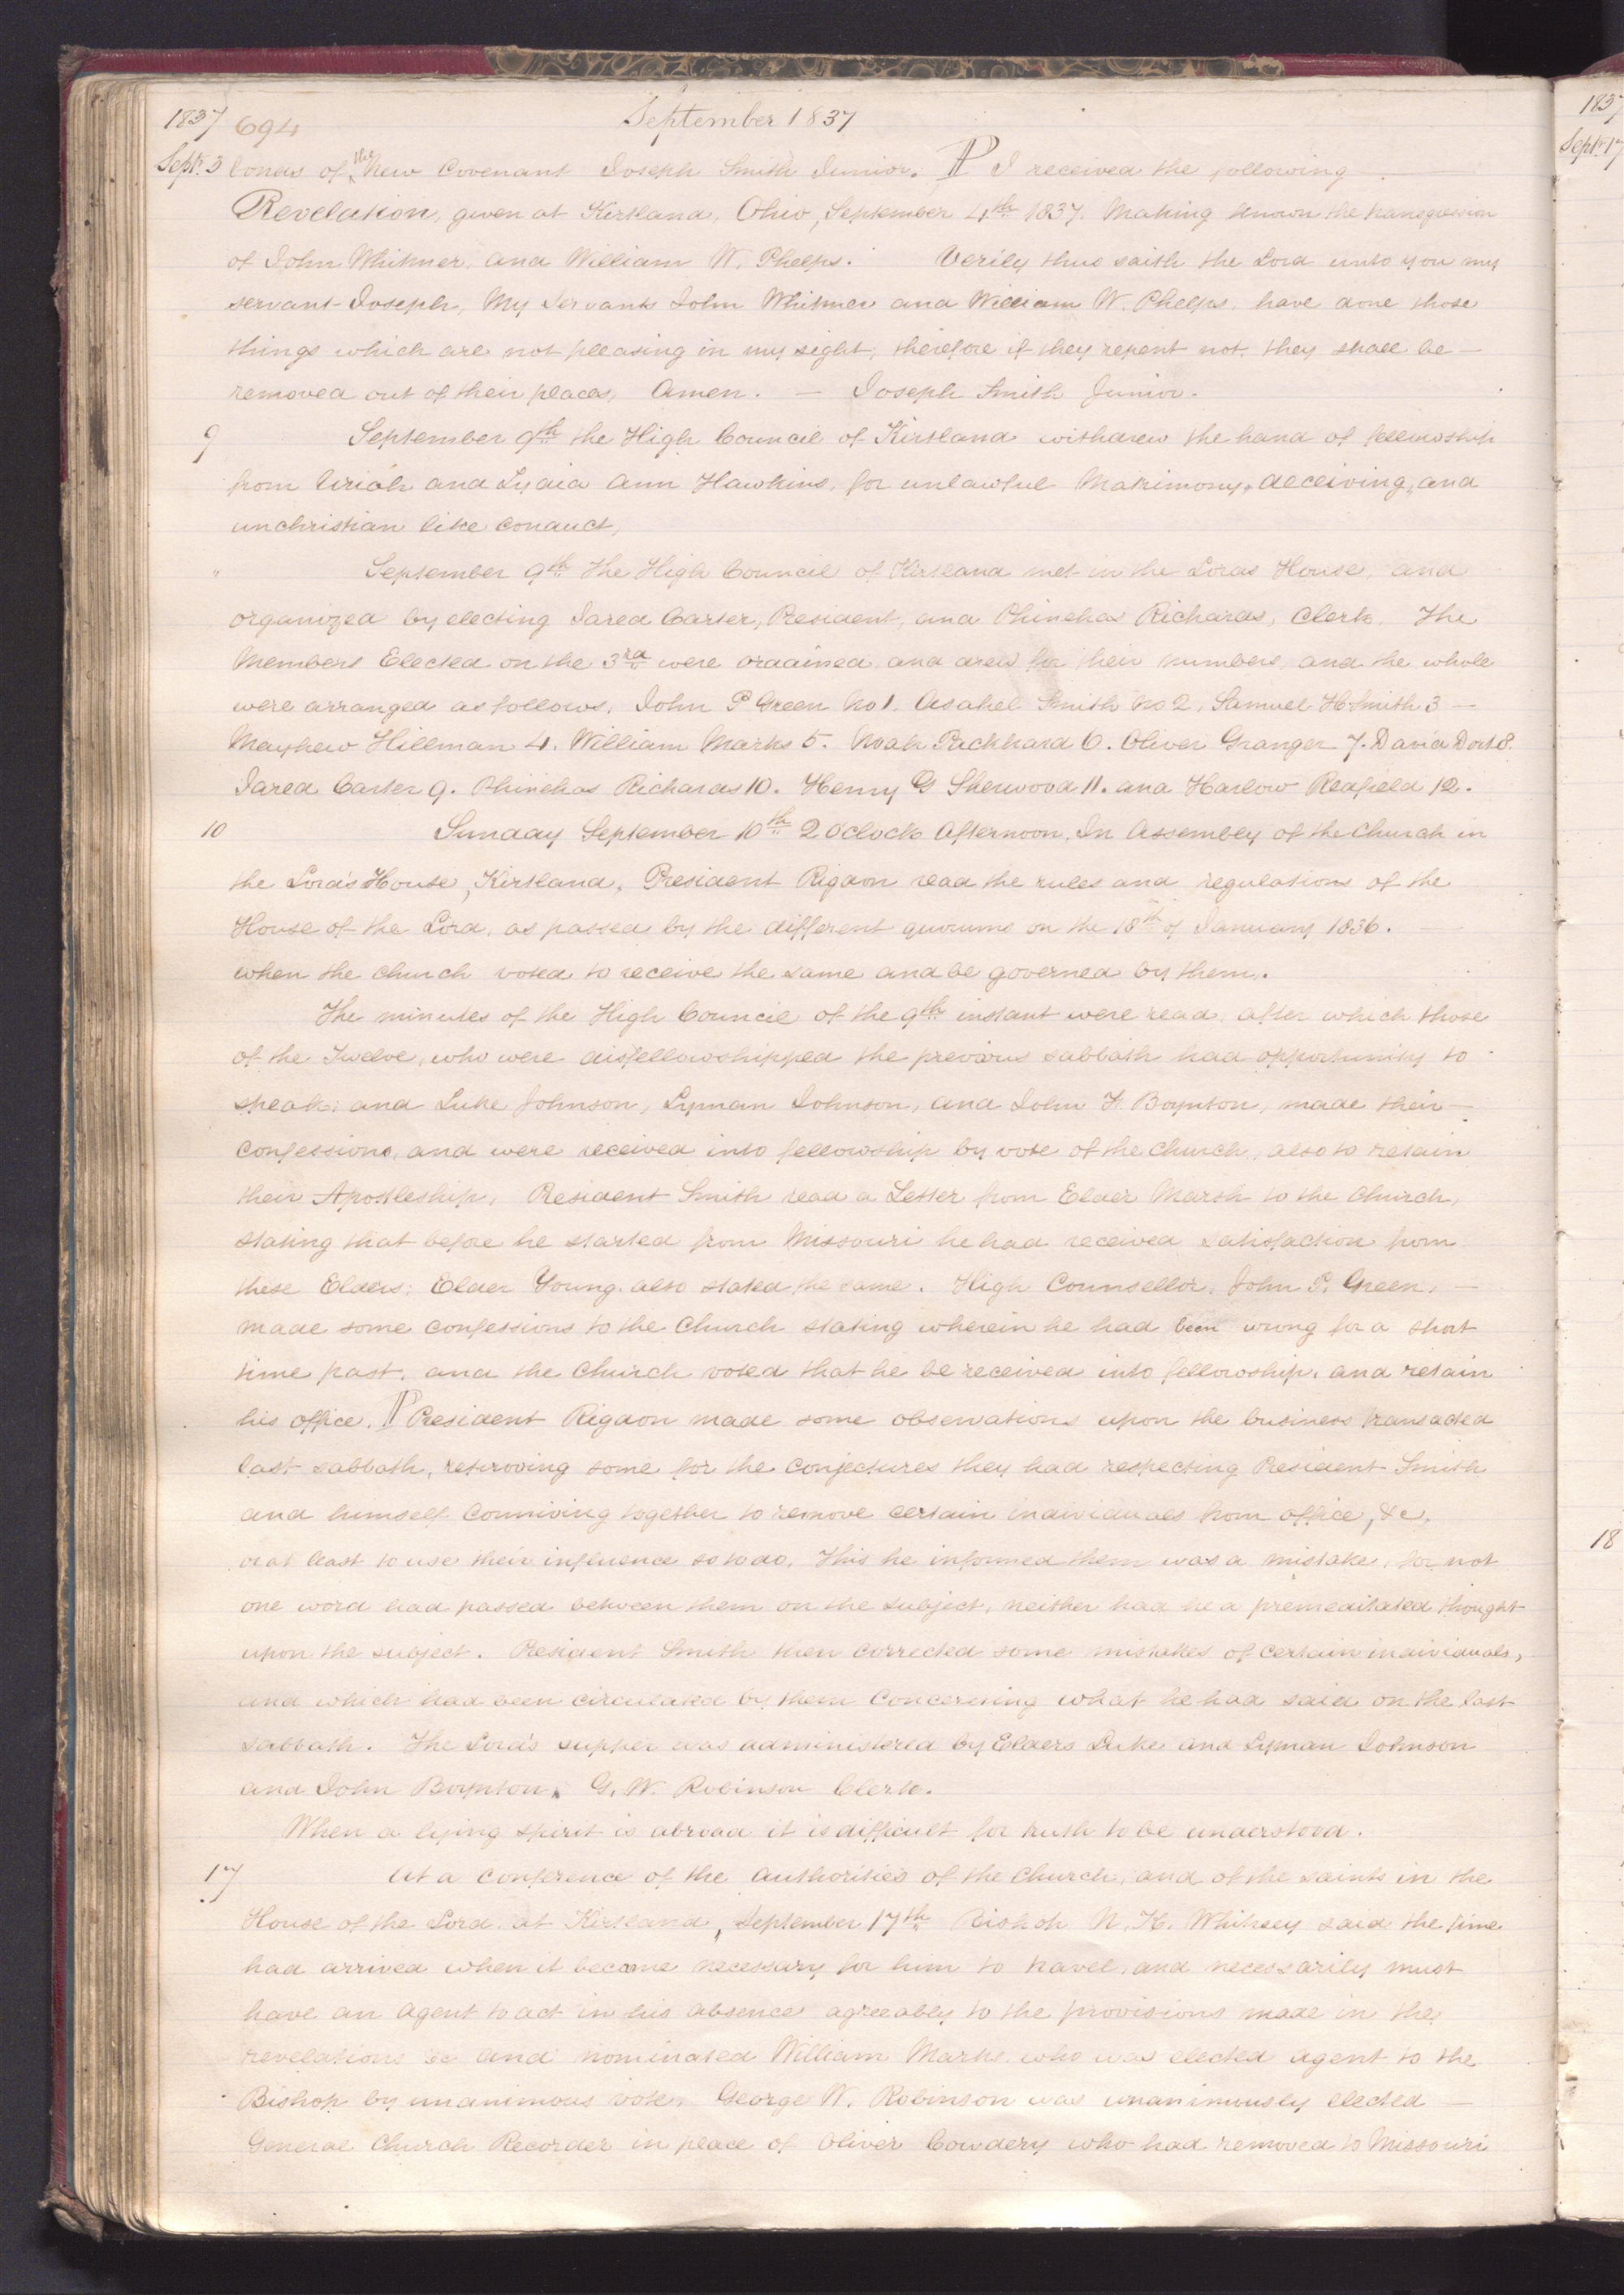 1837 694 September 1837
Sept. 3 bonds of ^the New Covenant Joseph Smith Junior. ¶ I received the following
Revelation, given at Kirtland, Ohio, September 4th 1837. Making known the transgression
of John Whitmer, and William W. Phelps. Verily thus saith the Lord unto you my
servant Joseph, My Servants John Whitmer and William W. Phelps, have done those
things which are not pleasing in my sight; therefore if they repent not, they shall be —
removed out of their places, Amen. — Joseph Smith Junior.
9 September 9th the High Council of Kirtland withdrew the hand of fellowship
from Uriah and Lydia Ann Hawkins, for unlawful Matrimony, deceiving, and
unchristian like conduct,
" September 9th The High Council of Kirtland met in the Lords House, and
organized by electing Jared Carter, President, and Phinehas Richards, Clerk. The
Members Elected on the 3rd were ordained and drew for their numbers, and the whole
were arranged as follows. John P Green No 1. Asahel Smith No 2, Samuel H. Smith 3 —
Mayhew Hillman 4. William Marks 5. Noah Packhard 6. Oliver Granger 7. David Dort 8.
Jared Carter 9. Phinehas Richards 10. Henry G Sherwood 11. and Harlow Redfield 12.
10 Sunday September 10th 2 Oclock Afternoon, In Assembly of the Church in
the Lord's House, Kirtland, President Rigdon read the rules and regulations of the
House of the Lord, as passed by the different quorums on the 18th of January 1836. —
when the church voted to receive the same and be governed by them.
The minutes of the High Council of the 9th instant were read, after which those
of the Twelve, who were disfellowshipped the previous sabbath had opportunity to
speak; and Luke Johnson, Lyman Johnson, and John F. Boynton, made their —
confessions, and were received into fellowship by vote of the Church, also to retain
their Apostleship, President Smith read a Letter from Elder Marsh to the Church,
stating that before he started from Missouri he had received satisfaction from
these Elders; Elder Young also stated the same. High Counsellor, John P. Green, —
made some confessions to the Church stating wherein he had been wrong for a short
time past, and the Church voted that he be received into fellowship, and retain
his office. ¶ President Rigdon made some observations upon the business transacted
last sabbath, reproving some for the conjectures they had respecting President Smith
and himself conniving together to remove certain individuals from office, &c,
or at least to use their influence so to do. This he informed them was a mistake, for not
one word had passed between them on the subject, neither had he a premeditated thought
upon the subject. President Smith then corrected some mistakes of certain individuals,
and which had been circulated by them concerning what he had said on the last
sabbath. The Lord's supper was administered by Elders Luke and Lyman Johnson
and John Boynton, G. W. Robinson Clerk.
When a lying spirit is abroad it is difficult for truth to be understood.
17 At a conference of the authorities of the Church, and of the saints in the
House of the Lord at Kirtland, September 17th Bishop N. K. Whitney said the time
had arrived when it become necessary for him to travel, and necessarily must
have an agent to act in his absence agreeably to the provisions made in the
revelations &c and nominated William Marks who was elected agent to the
Bishop by unanimous vote. George W. Robinson was unanimously elected —
General Church Recorder in place of Oliver Cowdery who had removed to Missouri
1837
Sept. 17
18